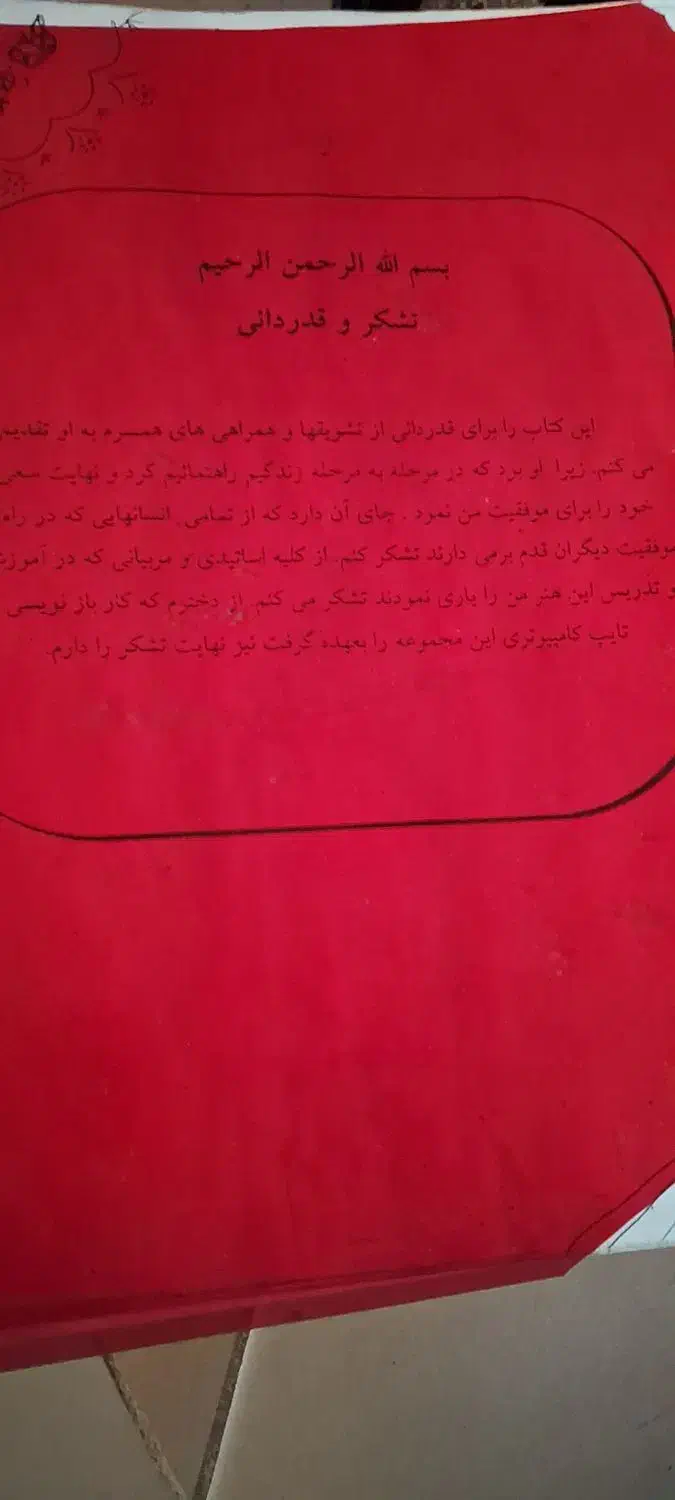 بسم الله الرحمن الرحیم
تشکر و قدردانی
این کتاب را برای قدردانی از تشویقها و همراهی های همسرم به او تقدیم
می کنم. زیرا او بود که در مرحله به مرحله زندگیم راهنمائیم کرد و نهایت سعی
خود را برای موفقیت من نمود . جای آن دارد که از تمامی انسانهایی که در راه
موفقیت دیگران قدم برمی دارند تشکر کنم. از کلیه اساتیدی و مربیانی که در آموزش
و تدریس این هنر من را یاری نمودند تشکر می کنم. از دخترم که کار باز نویسی
تایپ کامپیوتری این مجموعه را بعهده گرفت نیز نهایت تشکر را دارم.